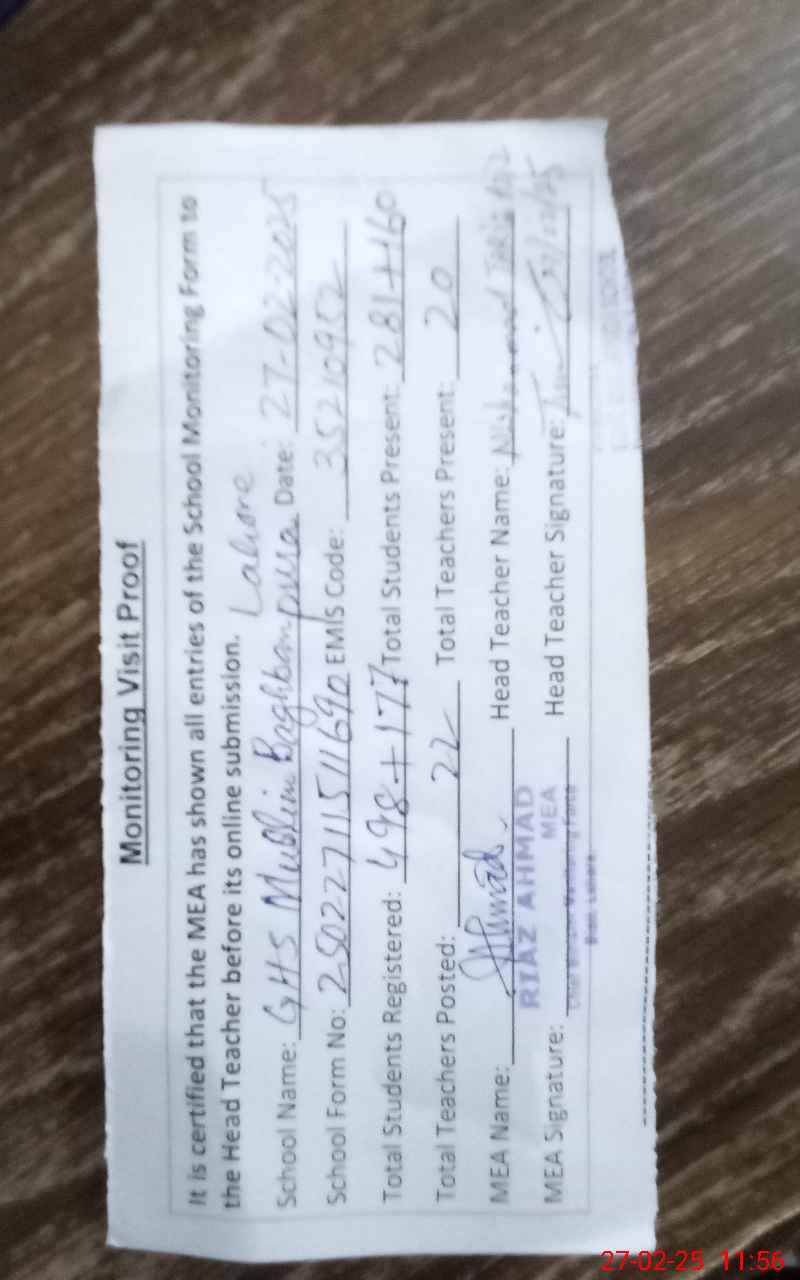 Monitoring Visit Proof
It is certified that the MEA has shown all entries of the School Monitoring Form to
the Head Teacher before its online submission.
School Name: GHS Muslim Baghbanpura Lahore Date: 27-02-2025
School Form No: 25022711511690 EMIS Code: 35210952
Total Students Registered: 498+177 Total Students Present: 281+160
Total Teachers Posted: 22 Total Teachers Present: 20
MEA Name: Head Teacher Name: Muhammad
RIAZ AHMAD
MEA
MEA Signature: Head Teacher Signature:
27-02-25 11:56